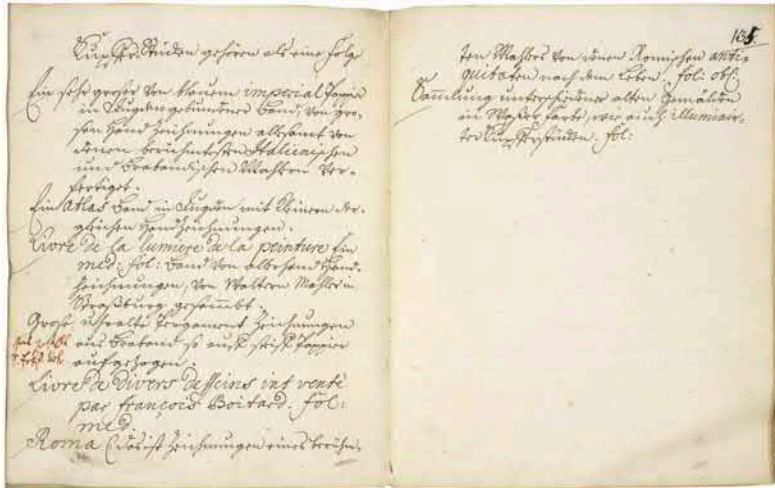 Kupffer Stücken gehören als eine folge
Ein sehr großer von blauem imperial Pappier
in Augden gebundener Band, von gro-
ßen Hand Zeichnungen allesamt von
denen berühmtesten Italienischen
und Brabandischen Mahlern ver-
fertiget.
Ein Atlas Band in mit kleinern der-
gleichen Handzeichnungen.
Livre de la lumiere de la peinture Ein
med: fol: Band von allerhand Hand-
Zeichnungen, von Waltern Mahlern in
Straßburg gesammlet.
Große uhralte Pergament Zeichnungen
aus Braband so auff Pappier
aufgezogen.
Livre de divers desseins int venté
par françois Boitard. fol:
med:
Roma (das ist Zeichnungen eines berühm-
135.
ten Mahlers von denen Romischen anti-
quitaten nach dem Leben. fol: obl:
Sammlung unterschiedener alten Gemälden
in Waßer farbe, wie auch illuminir-
ten Kupfferstücken. fol: